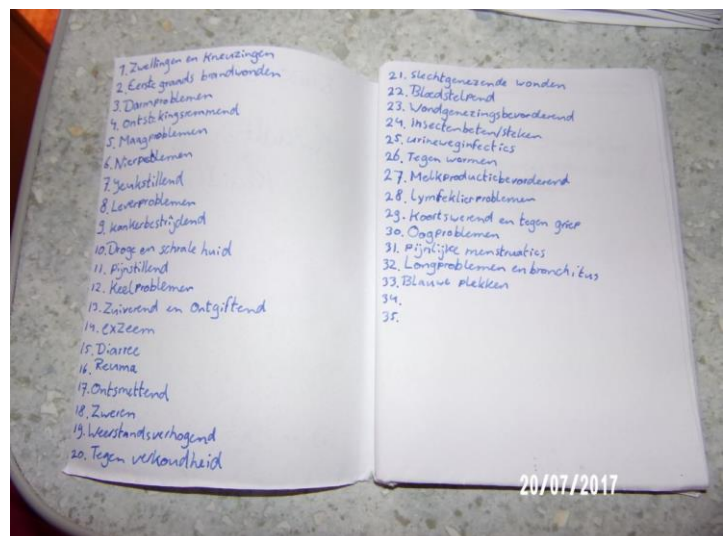 1. Zwellingen en Kneuzingen
2. Eerste graads brandwonden
3. Darmproblemen
4. Ontstekingsremmend
5. Maagproblemen
6. Nierproblemen
7. Jeukstillend
8. Leverproblemen
9. kankerbestrijdend
10. Droge en schrale huid
11. Pijnstillend
12. Keelproblemen
13. Zuiverend en Ontgiftend
14. exzeem
15. Diarree
16. Reuma
17. Ontsmettend
18. Zweren
19. Weerstandsverhogend
20. Tegen verkoudheid
21. slechtgenezende wonden
22. Bloedstelpend
23. Wondgenezingsbevorderend
24. Insectenbeten/steken
25. urineweginfecties
26. Tegen wormen
27. Melkproductiebevorderend
28. Lymfeklierproblemen
29. Koortswerend en tegen griep
30. Oogproblemen
31. Pijnlijke menstruaties
32. Longproblemen en bronchitus
33. Blauwe plekken
34.
35.
20/07/2017